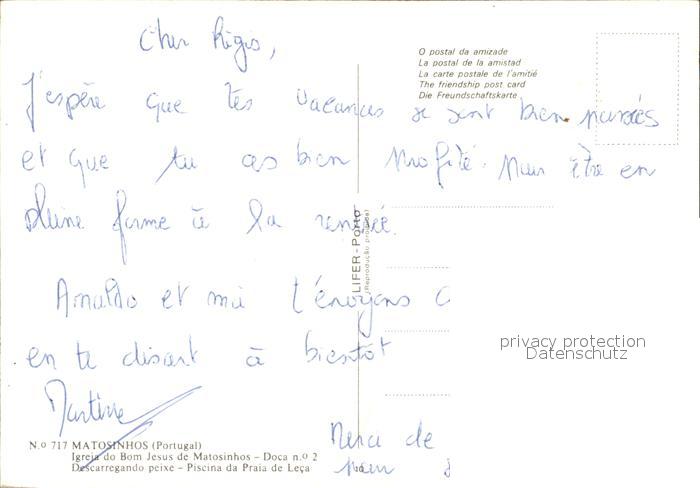 Cher Régis,
J'espère que tes vacances se sont bien passées
et que tu as bien profité pour être en
pleine forme à la rentrée.
Arnaldo et moi t'envoyons
en te disant à bientôt
Martine
Merci de
O postal da amizade
La postal de la amistad
La carte postale de l'amitié
The friendship post card
Die Freundschaftskarte
LIFER - Porto
(Reprodução proibida)
privacy protection
Datenschutz
N.º 717 MATOSINHOS (Portugal)
Igreja do Bom Jesus de Matosinhos – Doca n.º 2
Descarregando peixe – Piscina da Praia de Leça